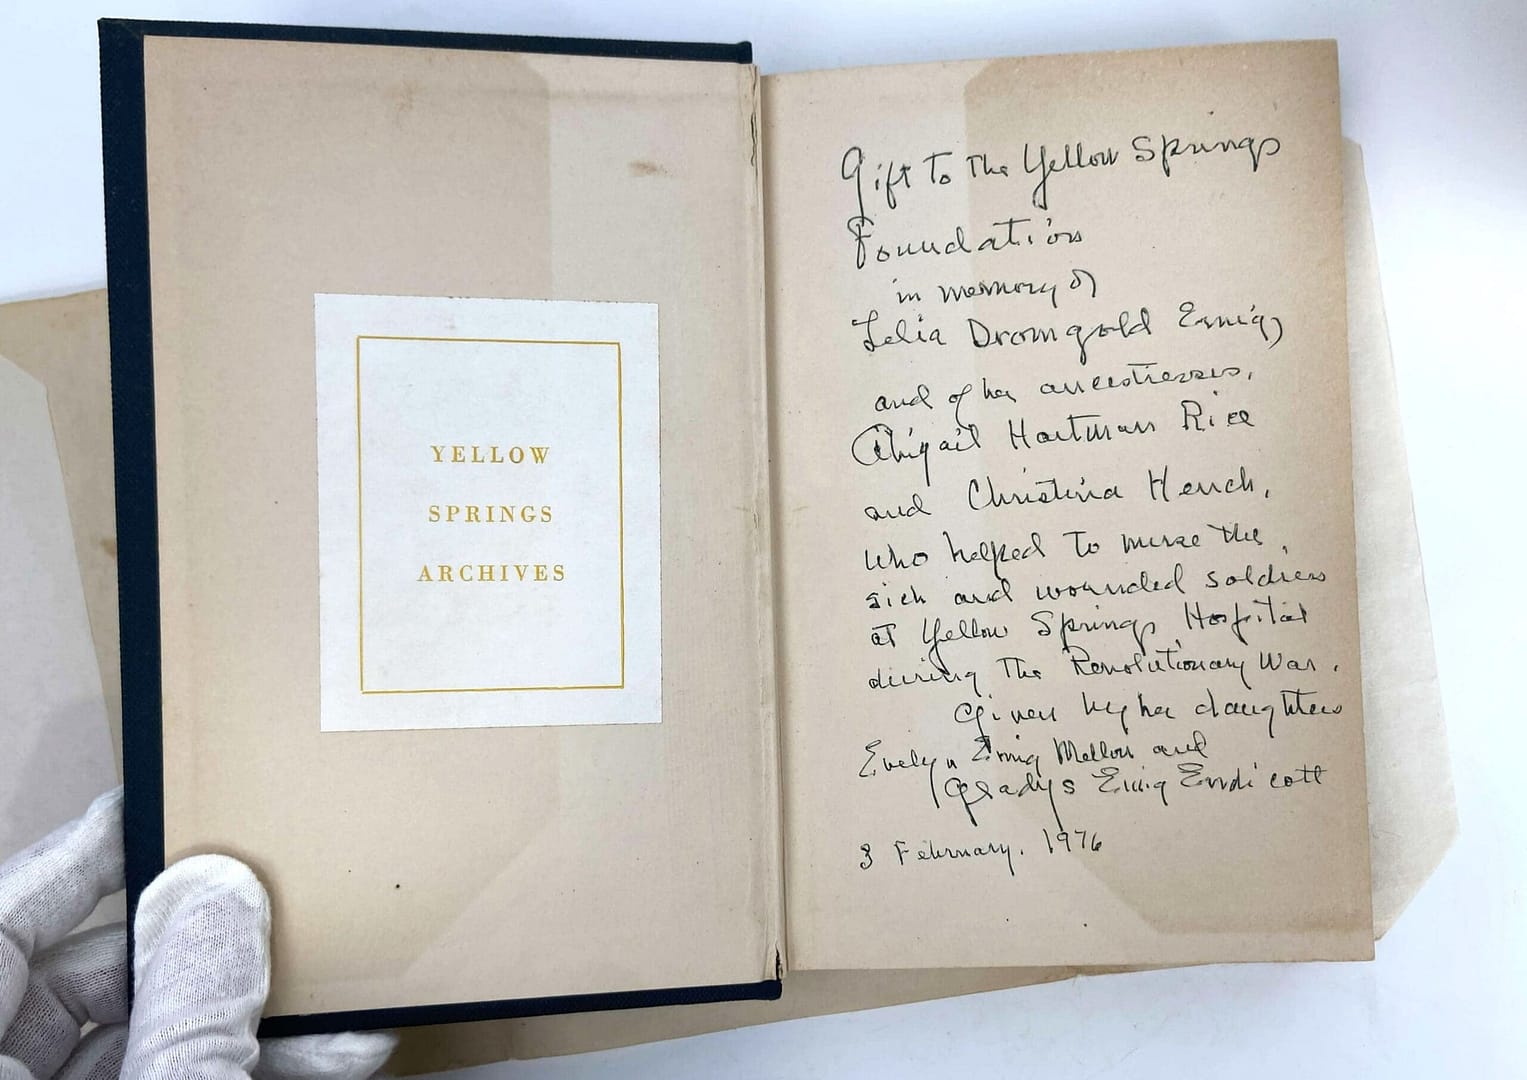 YELLOW
SPRINGS
ARCHIVES
Gift To The Yellow Springs
Foundation
in memory of
Lelia Dromgold Emig,
and of her ancestresses,
Abigail Hartman Rice
and Christina Hench,
who helped to nurse the
sick and wounded soldiers
at Yellow Springs Hospital
during The Revolutionary War.
Given by her daughters
Evelyn Emig Mellon and
Gladys Emig Endicott
3 February, 1976